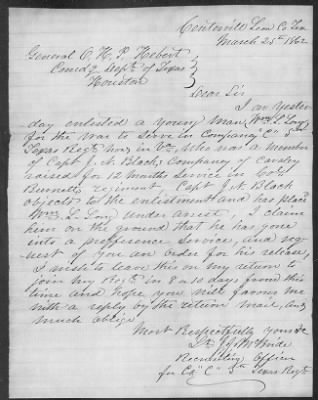 Centerville Leon Co Tex
March 25th 1862
General O. H. P. Hebert
Comdg Dept of Texas
Houston
Dear Sir
I on yester
day enlisted a young man Wm L. Long
for the war to serve in Company "C" 5th
Texas Regt now in Va, who was a member
of Capt J. N. Black, Company of cavalry
raised for 12 months service in Col
Burnett regiment, Capt J. N. Black
objects to the enlistment and has placed
Wm L. Long under arrest, I claim
him on the ground that he has gone
into a preference service, and req
uest of you an order for his release,
I wish to leave this on my return to
join my Regt in 8 or 10 days from this
time and hope you will favor me
with a reply by the return mail, and
much oblige
Most Respectfully yours &c
Recruiting Officer
for Co "C" 5th Texas Regt